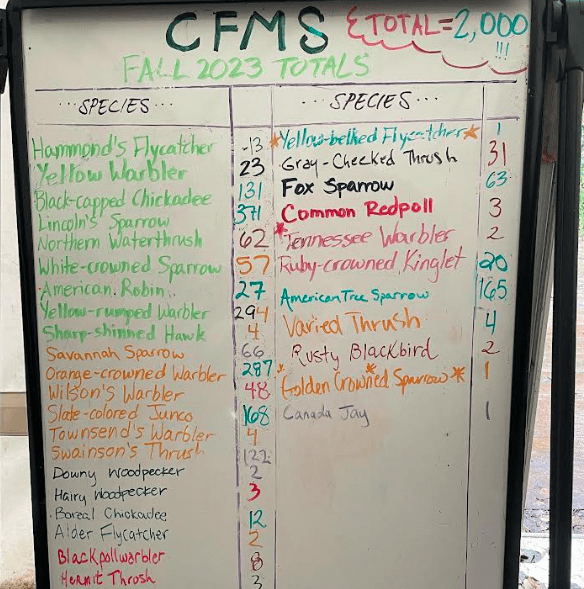 CFMS
ΣTOTAL=2,000
!!!
FALL 2023 TOTALS
...SPECIES...
Hammond's Flycatcher 13
Yellow Warbler 23
Black-capped Chickadee 131
Lincoln's Sparrow 371
Northern Waterthrush 62
White-crowned Sparrow 57
American Robin 27
Yellow-rumped Warbler 294
Sharp-shinned Hawk 4
Savannah Sparrow 66
Orange-crowned Warbler 287
Wilson's Warbler 48
Slate-colored Junco 168
Townsend's Warbler 4
Swainson's Thrush 122
Downy Woodpecker 2
Hairy Woodpecker 3
Boreal Chickadee 12
Alder Flycatcher 2
Blackpoll warbler 8
Hermit Throsh 3
...SPECIES...
*Yellow-bellied Flycatcher* 1
Gray-Cheeked Thrush 31
Fox Sparrow 63
Common Redpoll 3
*Tennessee Warbler 2
Ruby-crowned Kinglet 20
American Tree Sparrow 165
Varied Thrush 4
Rusty Blackbird 2
*Golden Crowned Sparrow* 1
Canada Jay 1